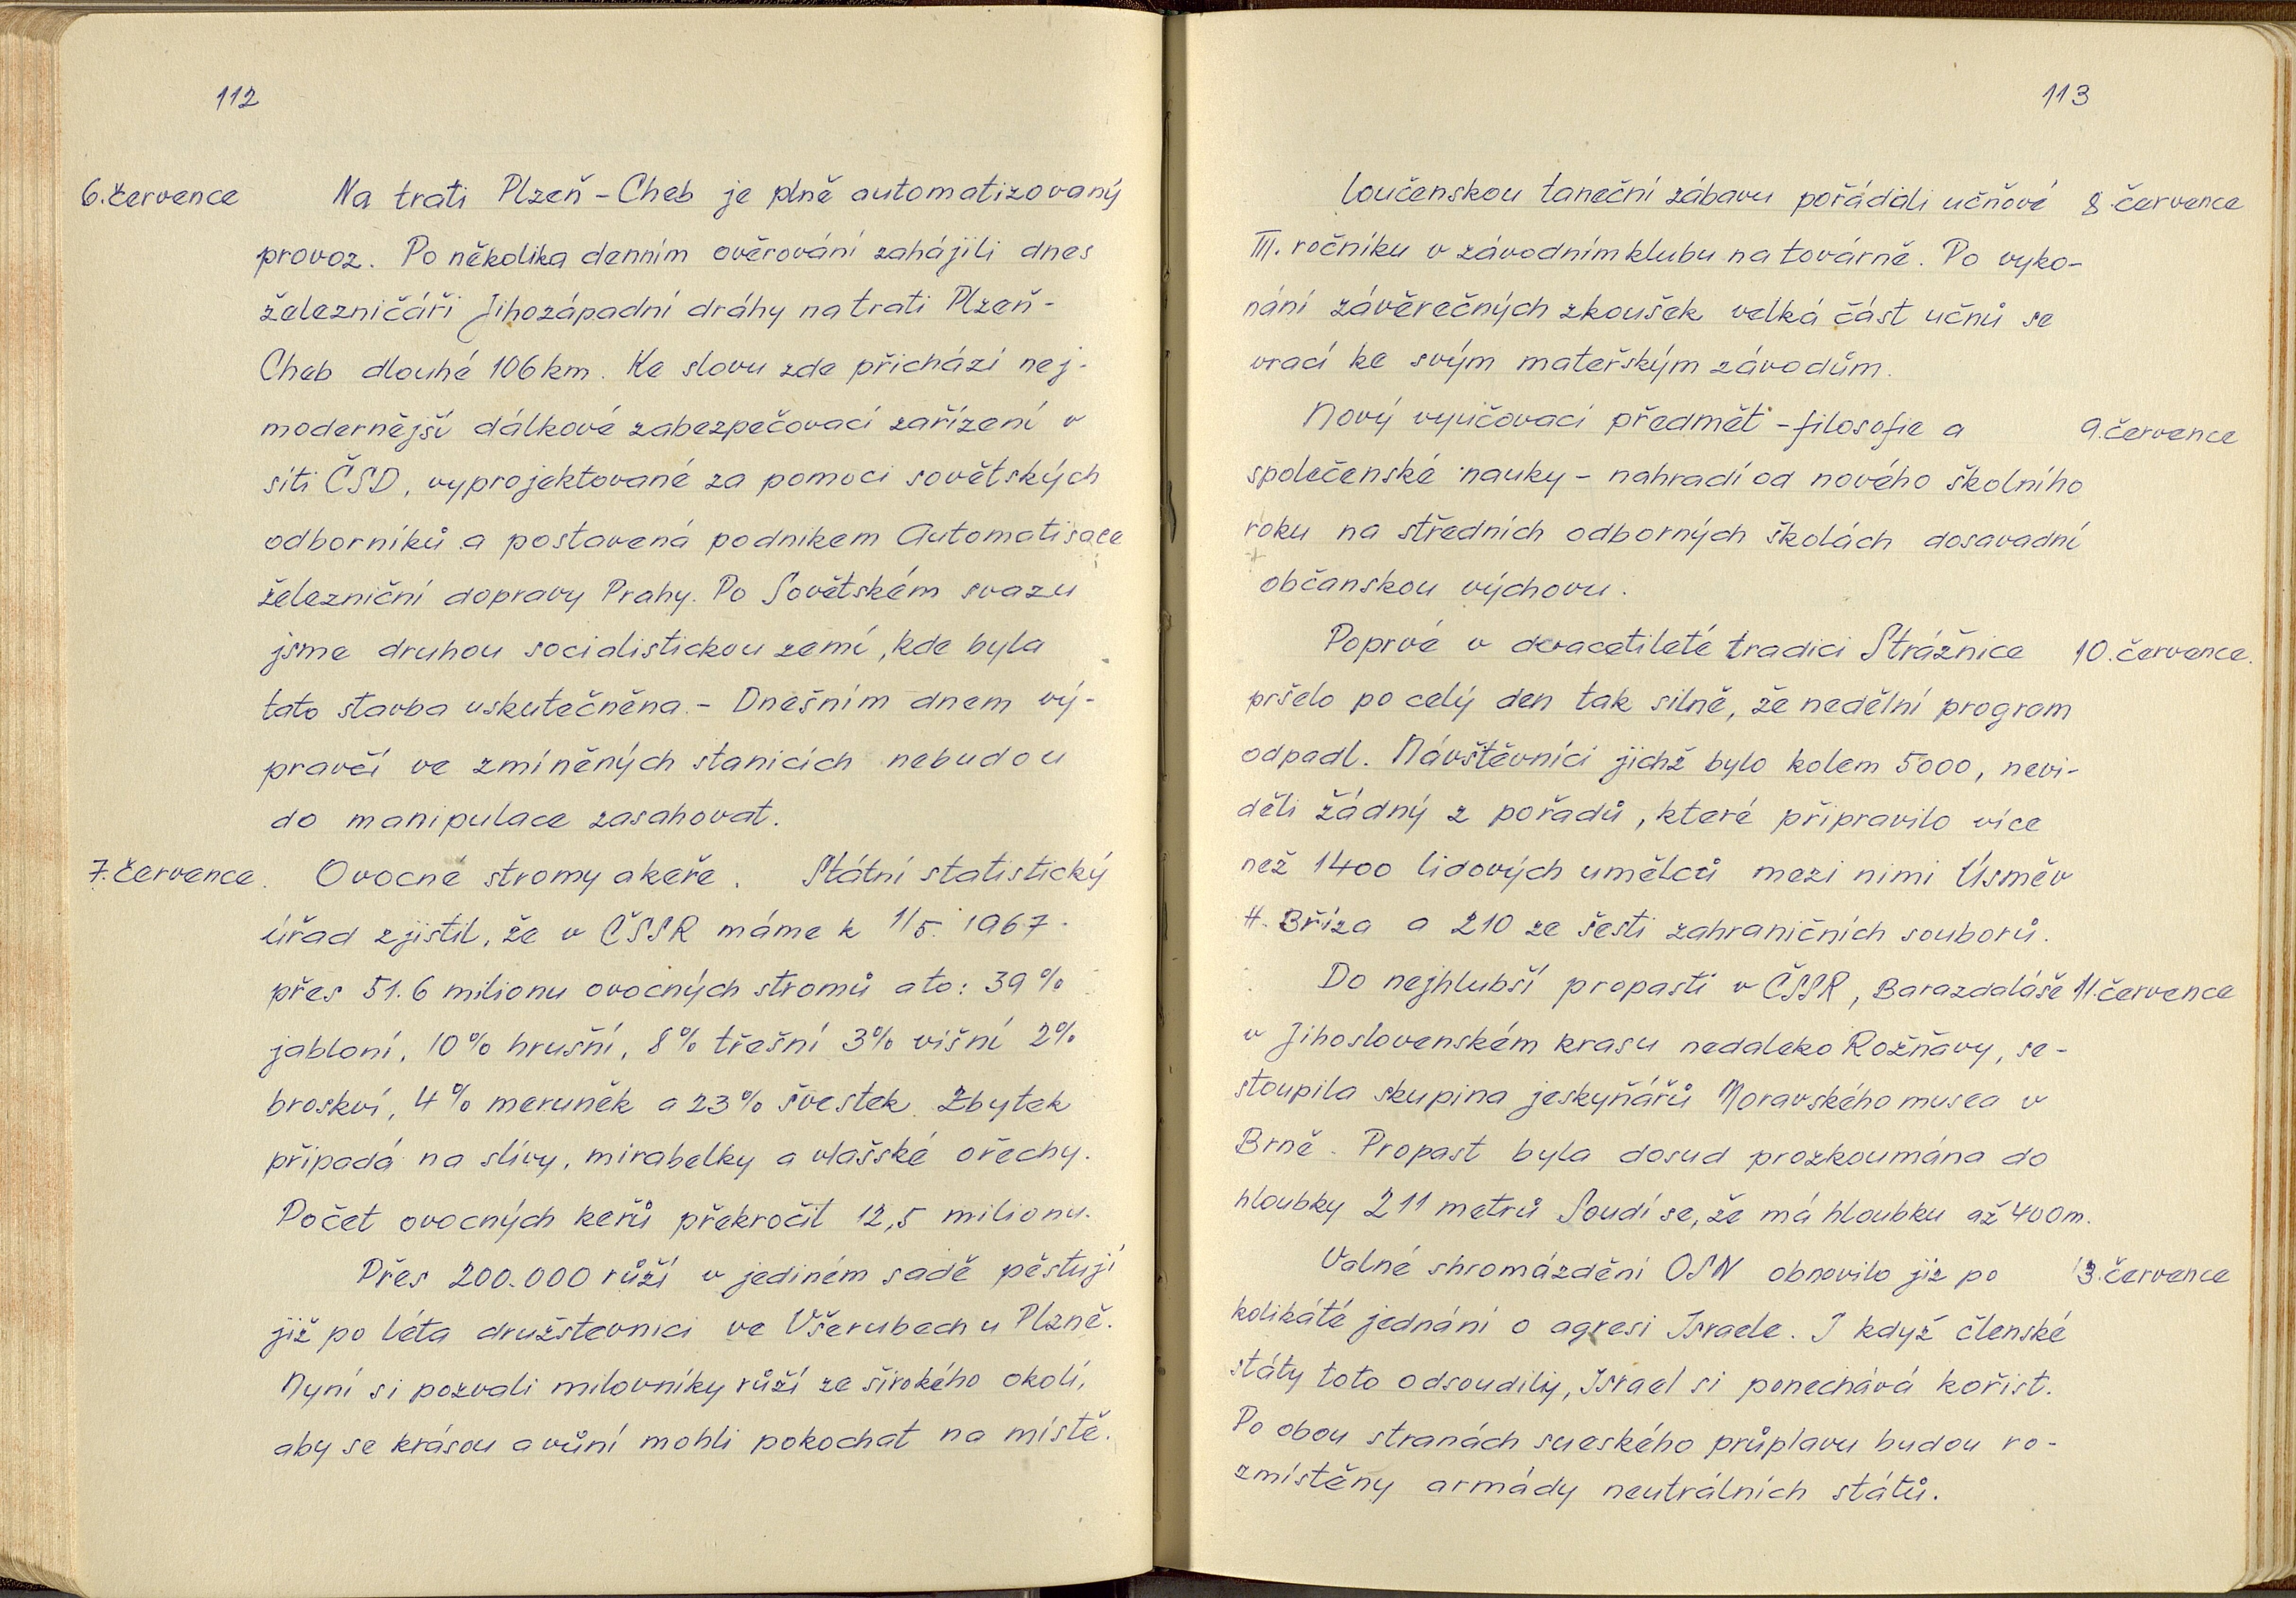 112
6. července Na trati Plzeň - Cheb je plně automatizovaný
provoz. Po několika denním ověrování zahájili dnes
železničáři Jihozápadní dráhy na trati Plzeň -
Cheb dlouhé 106 km. Ke slovu zde přichází nej-
modernější dálkové zabezpečovací zařízení v
síti ČSD, vyprojektované za pomoci sovětských
odborníků a postavená podnikem Automatisace
železniční dopravy Prahy. Po Sovětském svazu
jsme druhou socialistickou zemí, kde byla
tato stavba uskutečněna. - Dnešním dnem vý-
pravčí ve zmíněných stanicích nebudou
do manipulace zasahovat.
7. července. Ovocné stromy a keře. Státní statistický
úřad zjistil, že v ČSSR máme k 1/5. 1967.
přes 51.6 milionu ovocných stromů a to: 39%
jabloní, 10% hrušní, 8% třešní 3% višní 2%
broskví, 4% meruněk a 23% švestek. Zbytek
připadá na slívy, mirabelky a vlašské ořechy.
Počet ovocných keřů překročil 12,5 milionu.
Přes 200.000 růží v jediném sadě pěstují
již po léta družstevnici ve Všerubech u Plzně.
Nyní si pozvali milovníky růží ze širokého okolí,
aby se krásou a vůní mohli pokochat na místě.
113
loučenskou taneční zábavu pořádali učňové 8. července
III. ročníku v závodním klubu na továrně. Po vyko-
nání závěrečných zkoušek velká část učnů se
vrací ke svým mateřským závodům.
Nový vyučovací předmět - filosofie a 9. července
společenské nauky - nahradí od nového školního
roku na středních odborných školách dosavadní
občanskou výchovu.
Poprvé v dvacetileté tradici Strážnice 10. července.
pršelo po celý den tak silně, že nedělní program
odpadl. Návštěvníci jichž bylo kolem 5000, nevi-
děli žádný z pořadů, které připravilo více
než 1400 lidových umělců mezi nimi Úsměv
H. Bříza a 210 ze šesti zahraničních souborů.
Do nejhlubší propasti v ČSSR, Barazdaláše 11. července
v Jihoslovenském krasu nedaleko Rožňavy, se-
stoupila skupina jeskyňářů Moravského musea v
Brně. Propast byla dosud prozkoumána do
hloubky 211 metrů Soudí se, že má hloubku až 400m.
Valné shromáždění OSN obnovilo již po 13. července
kolikáté jednání o agresi Israele. I když členské
státy toto odsoudily, Israel si ponechává kořist.
Po obou stranách sueského průplavu budou ro-
zmístěny armády neutrálních států.